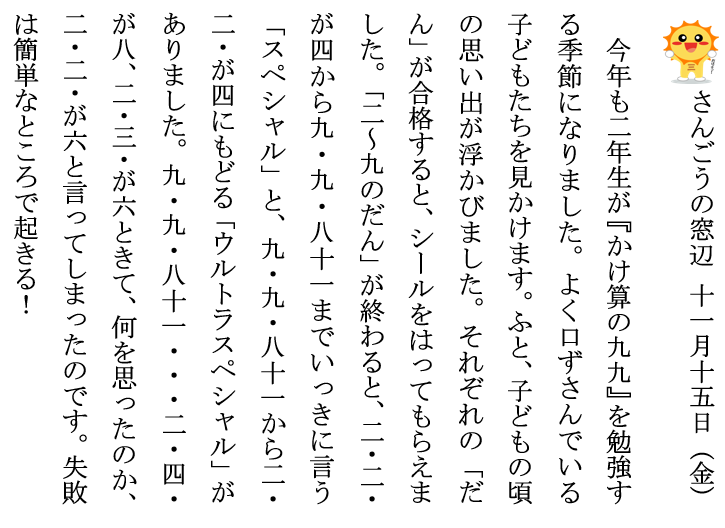 さんごうの窓辺　十一月十五日（金）
　今年も二年生が『かけ算の九九』を勉強す
る季節になりました。よく口ずさんでいる
子どもたちを見かけます。ふと、子どもの頃
の思い出が浮かびました。それぞれの「だ
ん」が合格すると、シールをはってもらえま
した。「二〜九のだん」が終わると、二・二・
が四から九・九・八十一までいっきに言う
「スペシャル」と、九・九・八十一から二・
二・が四にもどる「ウルトラスペシャル」が
ありました。九・九・八十一・・・二・四・
が八、二・三・が六ときて、何を思ったのか、
二・二・が六と言ってしまったのです。失敗
は簡単なところで起きる！